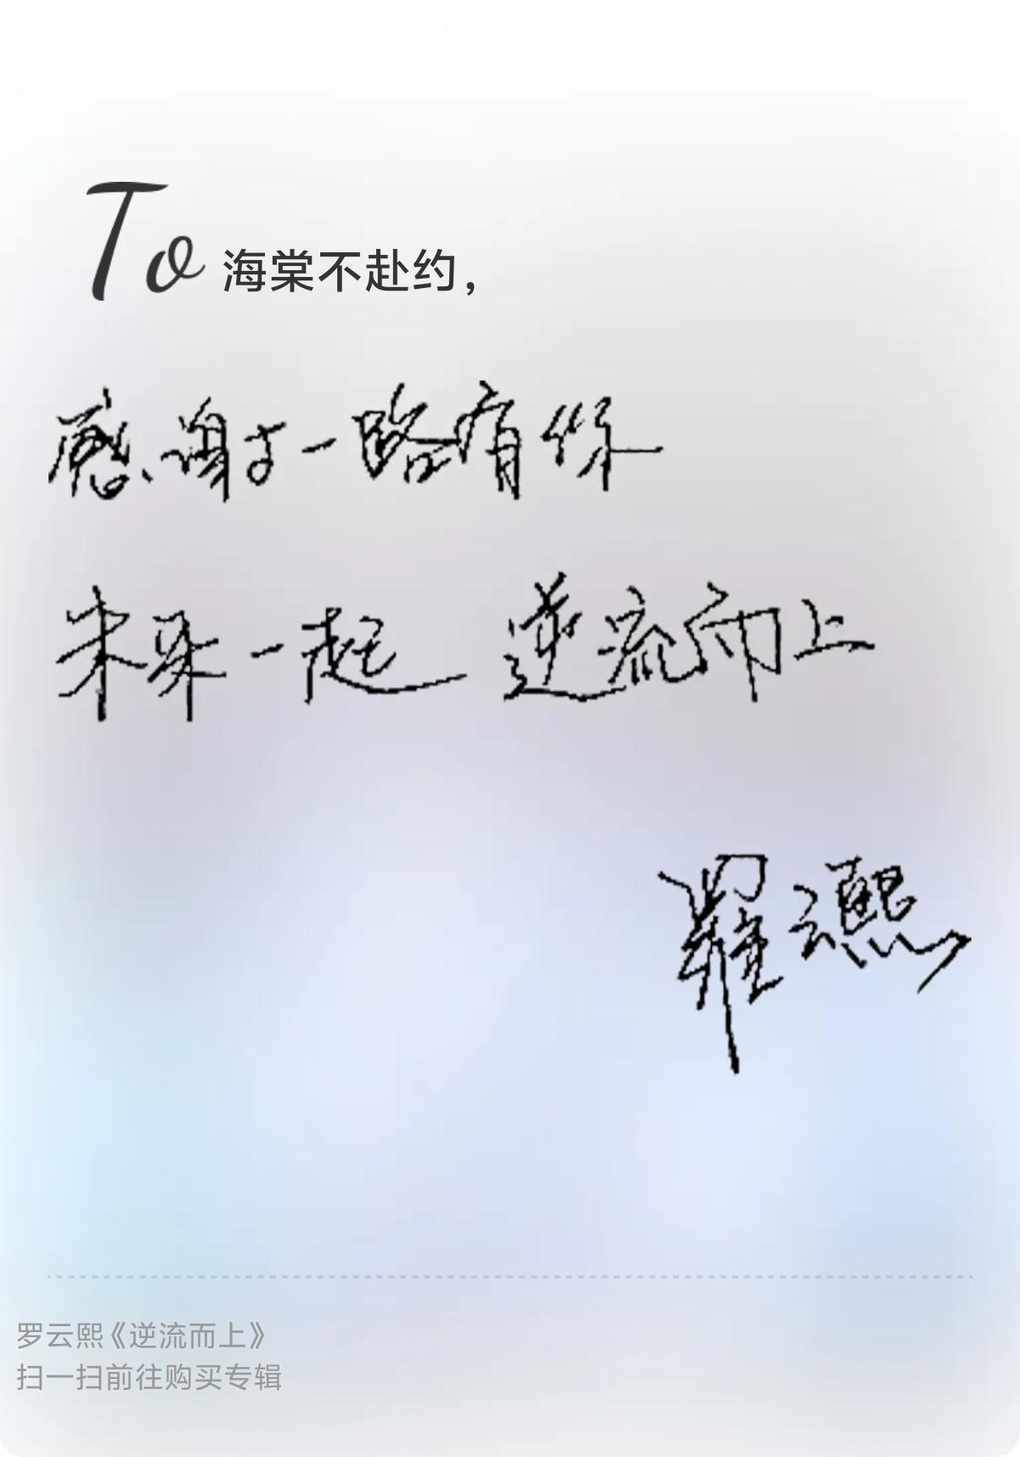 To 海棠不赴约，
感谢一路有你
未来一起 逆流而上
羅云熙
罗云熙《逆流而上》
扫一扫前往购买专辑